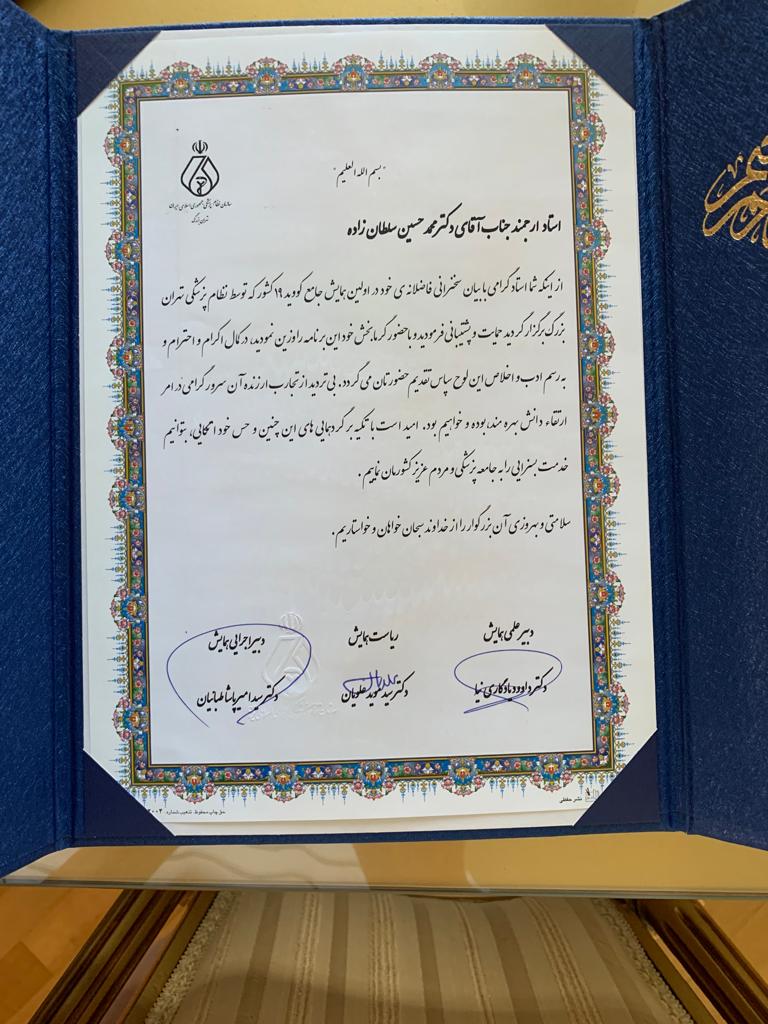 "بسم الله العلیم"
سازمان نظام پزشکی جمهوری اسلامی ایران
تهران بزرگ
استاد ارجمند جناب آقای دکتر محمد حسین سلطان زاده
از اینکه شما استاد گرامی با بیان سخنرانی فاضلانه ی خود در اولین همایش جامع کووید ۱۹ کشور که توسط نظام پزشکی تهران
بزرگ برگزار گردید حمایت و پشتیبانی فرمودید و با حضور گرمابخش خود این برنامه را وزین نمودید، در کمال اکرام و احترام و
به رسم ادب و اخلاص این لوح سپاس تقدیم حضورتان می گردد. بی تردید از تجارب ارزنده آن سرور گرامی در امر
ارتقاء دانش بهره مند، بوده و خواهیم بود. امید است با تکیه بر گردهمایی های این چنین و حس خود اتکایی، بتوانیم
خدمت بسزایی را به جامعه پزشکی و مردم عزیز کشورمان نماییم.
سلامتی و بهروزی آن بزرگوار را از خداوند سبحان خواهان و خواستاریم.
دبیر علمی همایش
ریاست همایش
دبیر اجرایی همایش
دکتر داوود یادگاری نیا
دکتر سید موید علویان
دکتر سید امیرپاشا طبائیان
نشر حفظی
حق چاپ محفوظ. تذهیب شماره: